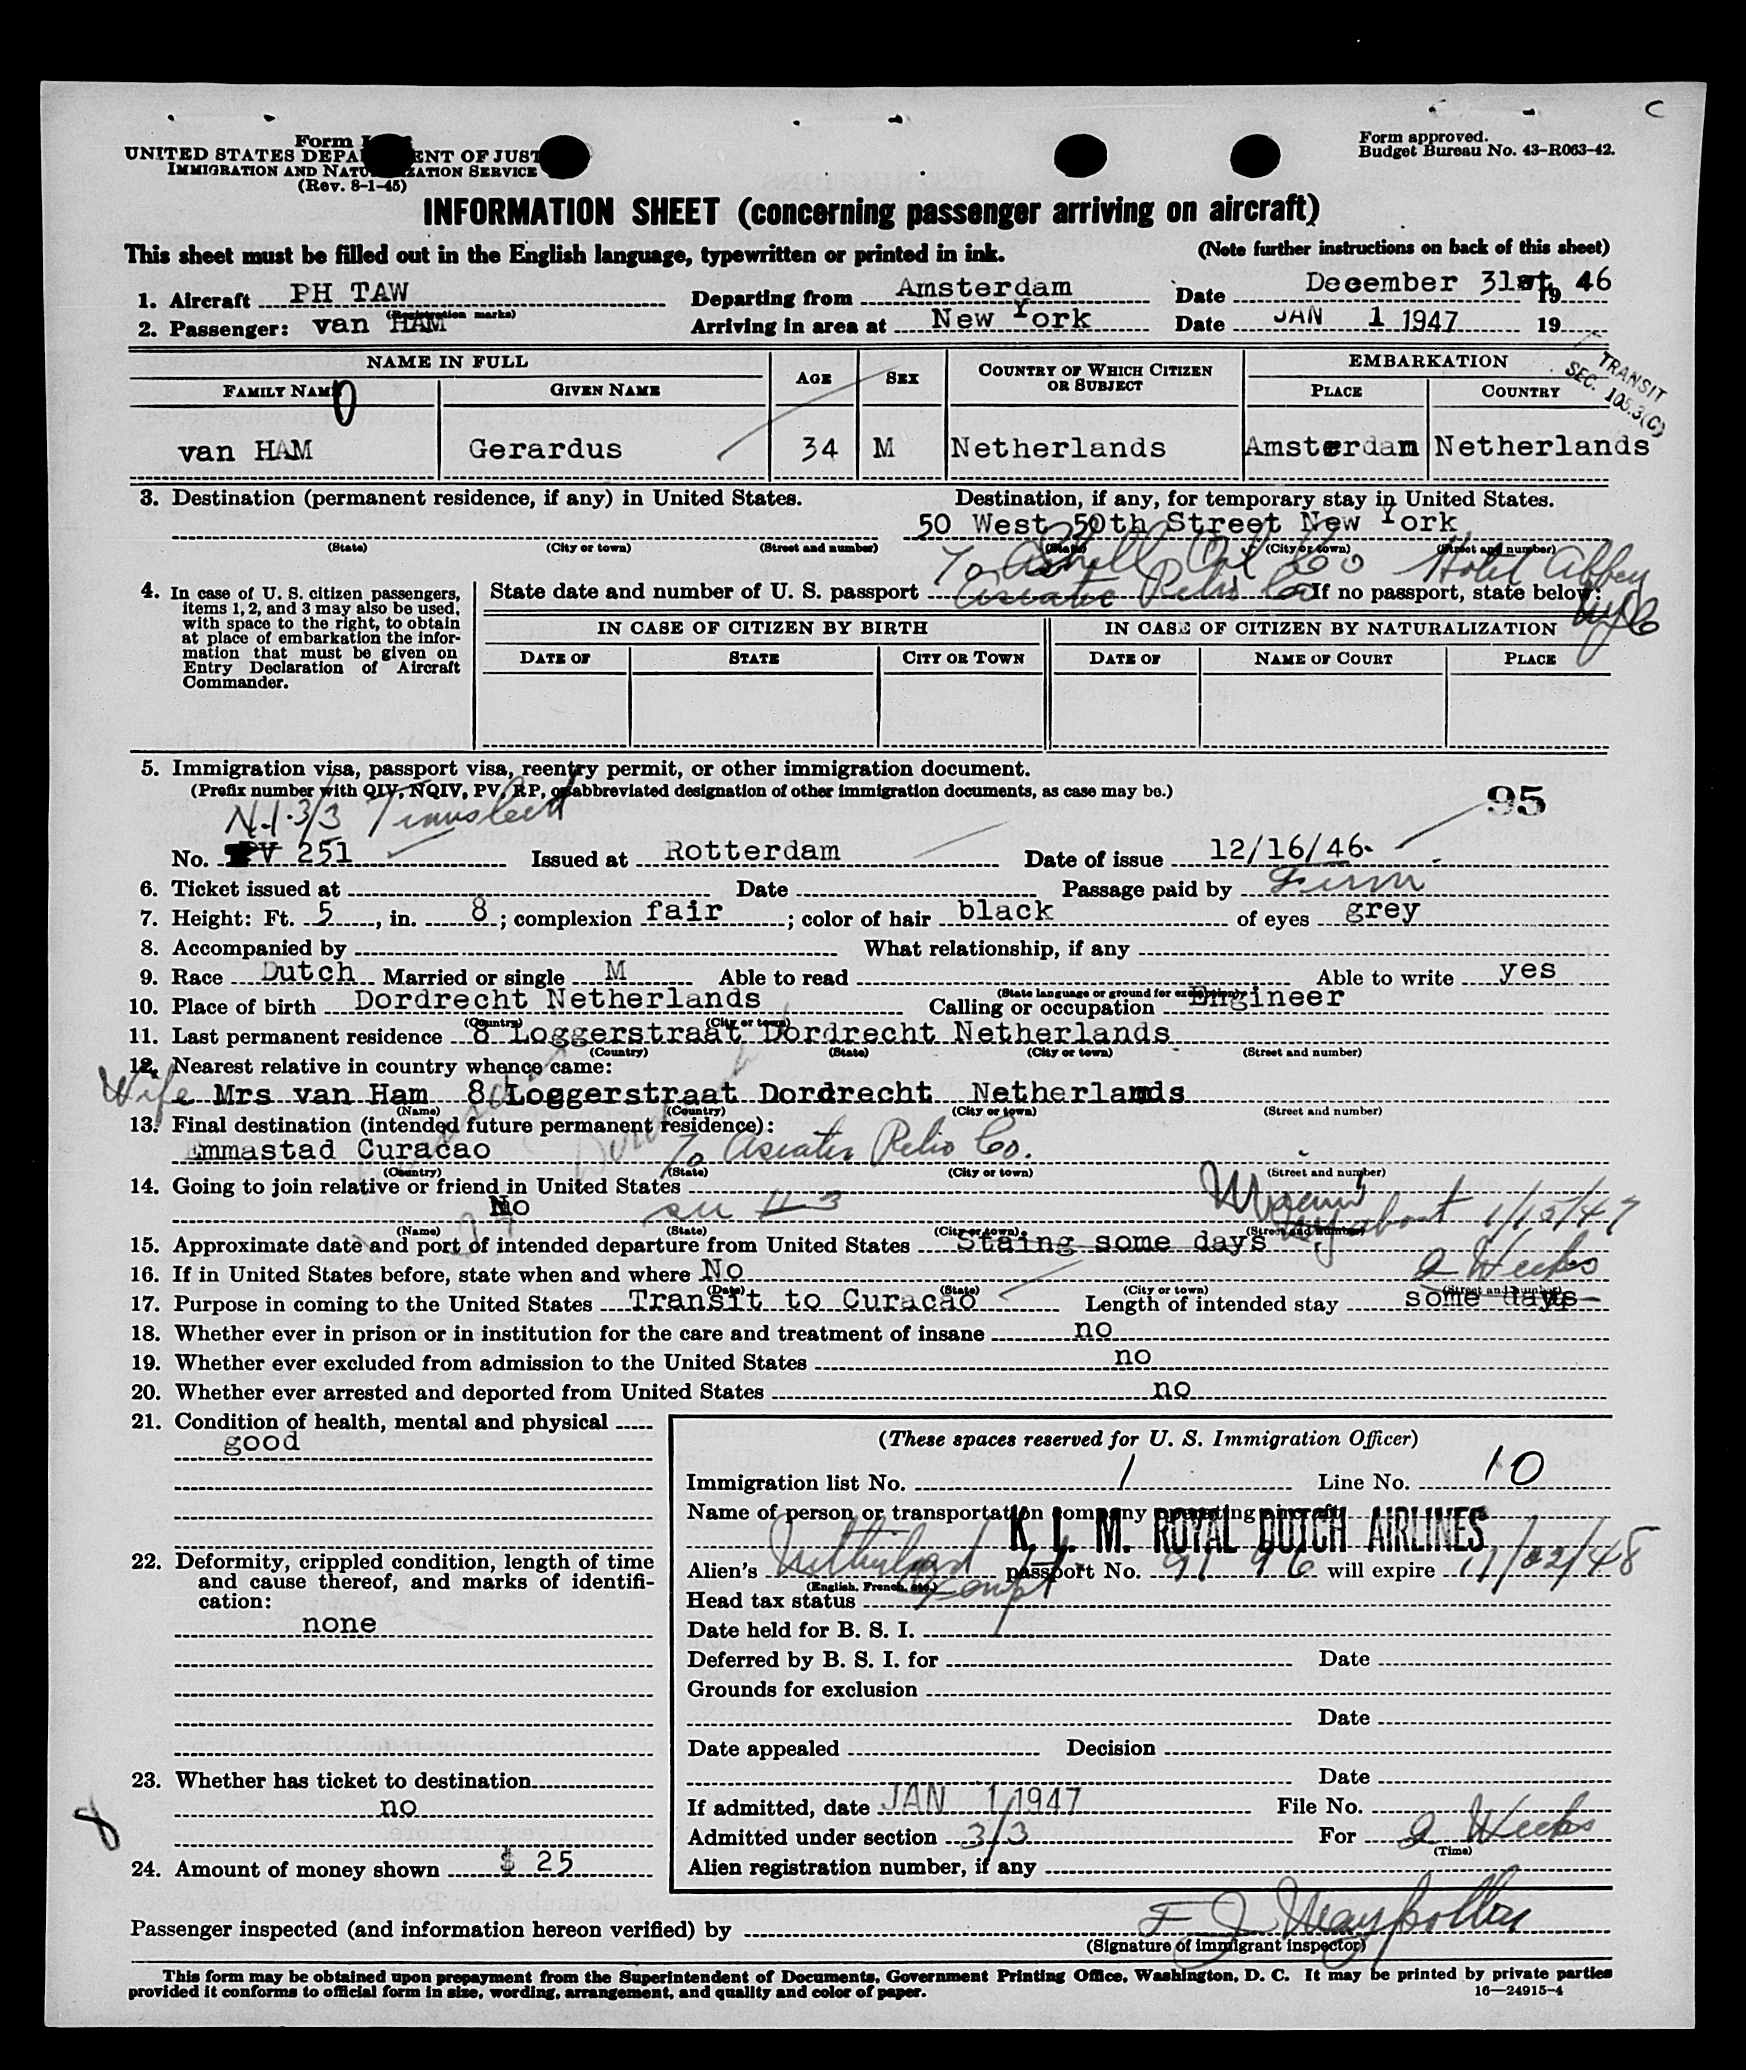 C
Form I-
UNITED STATES DEPA ENT OF JUST
IMMIGRATION AND NATU ZATION SERVICE
(Rev. 8-1-45)
Form approved.
Budget Bureau No. 43-R063-42.
INFORMATION SHEET (concerning passenger arriving on aircraft)
This sheet must be filled out in the English language, typewritten or printed in ink. (Note further instructions on back of this sheet)
1. Aircraft PH TAW Departing from Amsterdam Date December 31st, 19 46
(Registration marks)
2. Passenger: van HAM Arriving in area at New York Date JAN 1 1947 19
TRANSIT
SEC. 105.3(C)
NAME IN FULL AGE SEX COUNTRY OF WHICH CITIZEN OR SUBJECT EMBARKATION
FAMILY NAME GIVEN NAME PLACE COUNTRY
van HAM Gerardus 34 M Netherlands Amsterdam Netherlands
3. Destination (permanent residence, if any) in United States. Destination, if any, for temporary stay in United States.
50 West 50th Street New York
(State) (City or town) (Street and number) (State) (City or town) (Street and number)
To Shell Oil Co Hotel Abbey
Asiatic Petro Co NYC
4. In case of U. S. citizen passengers, items 1, 2, and 3 may also be used, with space to the right, to obtain at place of embarkation the information that must be given on Entry Declaration of Aircraft Commander.
State date and number of U. S. passport If no passport, state below:
IN CASE OF CITIZEN BY BIRTH IN CASE OF CITIZEN BY NATURALIZATION
DATE OF STATE CITY OR TOWN DATE OF NAME OF COURT PLACE
5. Immigration visa, passport visa, reentry permit, or other immigration document.
(Prefix number with QIV, NQIV, PV, RP, or abbreviated designation of other immigration documents, as case may be.)
95
N.I. 3/3
No. PV 251 Issued at Rotterdam Date of issue 12/16/46.
6. Ticket issued at Date Passage paid by Firm
7. Height: Ft. 5, in. 8; complexion fair; color of hair black of eyes grey
8. Accompanied by What relationship, if any
9. Race Dutch Married or single M Able to read Able to write yes
(State language or ground for exemption)
10. Place of birth Dordrecht Netherlands Calling or occupation Engineer
(Country) (City or town)
11. Last permanent residence 8 Loggerstraat Dordrecht Netherlands
(Country) (State) (City or town) (Street and number)
12. Nearest relative in country whence came:
Wife Mrs van Ham 8 Loggerstraat Dordrecht Netherlands
(Name) (Country) (City or town) (Street and number)
13. Final destination (intended future permanent residence):
Emmastad Curacao To Asiatic Petro Co.
(Country) (State) (City or town) (Street and number)
14. Going to join relative or friend in United States
No see #3
(Name) (State) (City or town) (Street and number)
Miami
by about 1/15/47
15. Approximate date and port of intended departure from United States Staing some days
16. If in United States before, state when and where No
(Date) (State) (City or town) (Street and number)
2 Weeks
17. Purpose in coming to the United States Transit to Curacao Length of intended stay some days
18. Whether ever in prison or in institution for the care and treatment of insane no
19. Whether ever excluded from admission to the United States no
20. Whether ever arrested and deported from United States no
21. Condition of health, mental and physical
good
22. Deformity, crippled condition, length of time and cause thereof, and marks of identification:
none
23. Whether has ticket to destination
no
8
24. Amount of money shown $ 25
(These spaces reserved for U. S. Immigration Officer)
Immigration list No. 1 Line No. 10
Name of person or transportation company operating aircraft
K. L. M. ROYAL DUTCH AIRLINES
Alien's Netherland passport No. 9196 will expire 11/02/48
(English, French, etc.)
Head tax status Exempt
Date held for B. S. I.
Deferred by B. S. I. for Date
Grounds for exclusion
Date
Date appealed Decision
Date
If admitted, date JAN 1 1947 File No.
Admitted under section 3/3 For 2 Weeks
(Time)
Alien registration number, if any
Passenger inspected (and information hereon verified) by F J
(Signature of immigrant inspector)
This form may be obtained upon prepayment from the Superintendent of Documents, Government Printing Office, Washington, D. C. It may be printed by private parties
provided it conforms to official form in size, wording, arrangement, and quality and color of paper. 16—24915-4